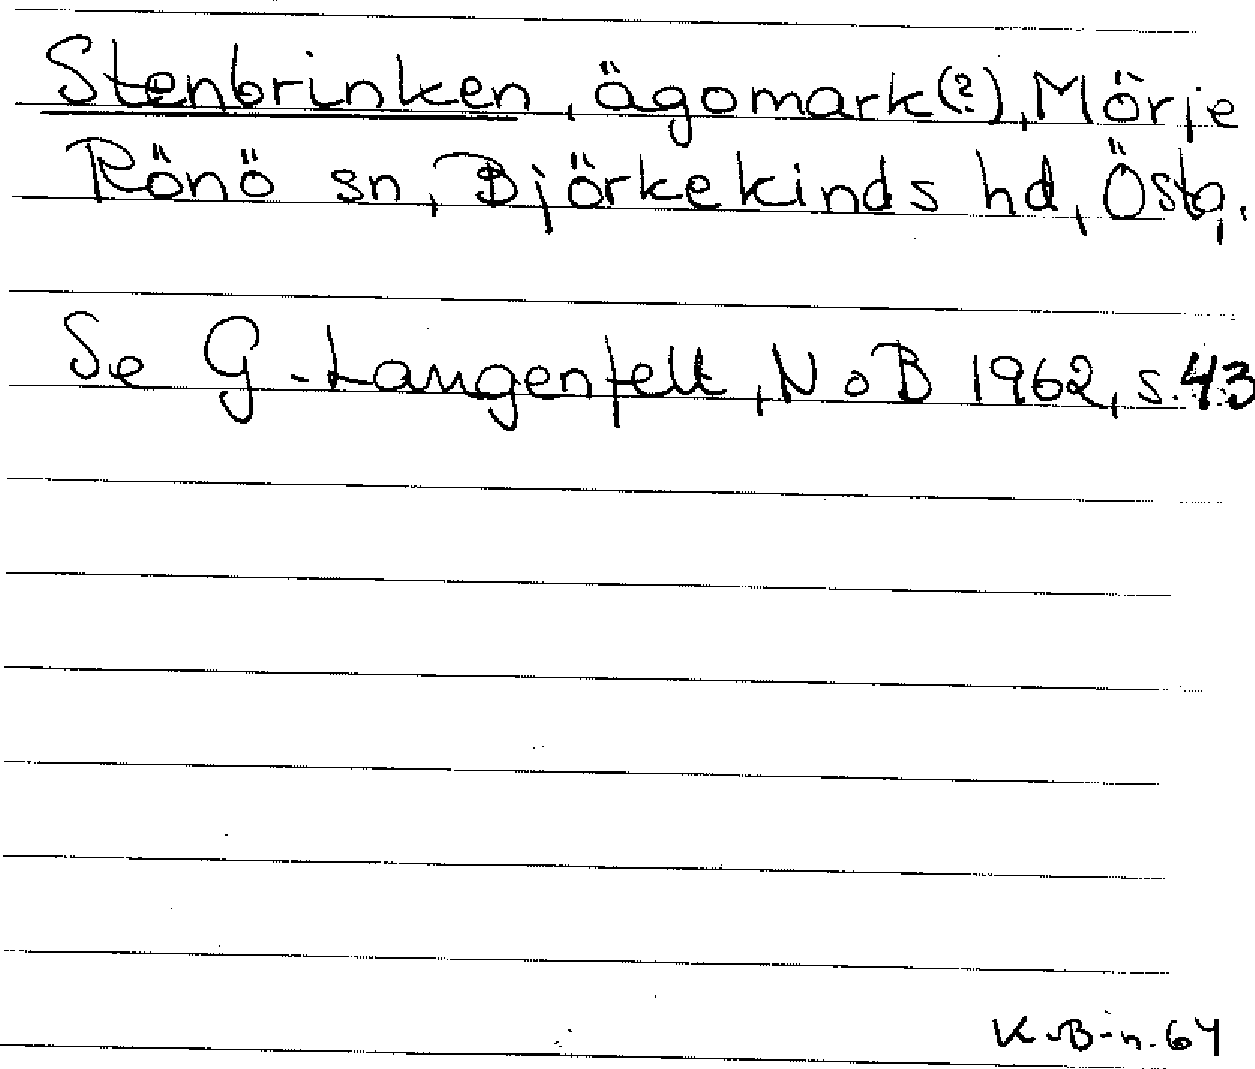 Stenbrinken, ägomark(?), Mörje
Rönö sn, Björkekinds hd, Östg.
Se G. Langenfelt, NoB 1962, s. 43
K.B-n. 64